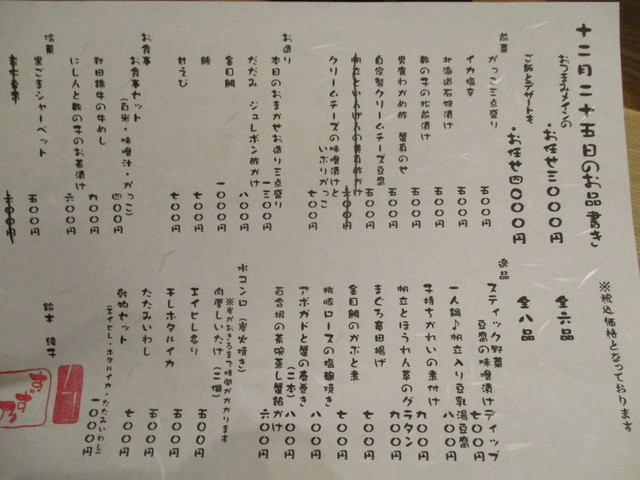 十二月二十五日のお品書き
※税込価格となっております
おつまみメインの
・お任せ三〇〇〇円 全六品
ご飯とデザートも
・お任せ四〇〇〇円 全八品
前菜
がっこ三点盛り 五〇〇円
イカ塩辛 五〇〇円
北海道石狩漬け 五〇〇円
数の子の松前漬け 五〇〇円
男鹿わかめ酢 蟹身のせ 五〇〇円
自家製クリームチーズ豆腐 五〇〇円
帆立といんげんの黄身酢がけ 六〇〇円
クリームチーズの味噌漬けと
いぶりがっこ 七〇〇円
お造り
本日のおまかせお造り三点盛り 一三〇〇円
だだみ ジュレポン酢かけ 八〇〇円
金目鯛 一〇〇〇円
七〇〇円
甘えび 七〇〇円
お食事
お食事セット
(白米・味噌汁・がっこ) 四〇〇円
秋田錦牛の牛めし 九〇〇円
にしんと数の子のお茶漬け 六〇〇円
冷菓
黒ごまシャーベット 五〇〇円
六〇〇円
逸品
スティック野菜
豆腐の味噌漬けディップ 七〇〇円
一人鍋♪帆立入り豆乳湯豆腐 八〇〇円
子持ちかれいの煮付け 九〇〇円
帆立とほうれん草のグラタン 九〇〇円
まぐろ竜田揚げ 七〇〇円
金目鯛のかぶと煮 七〇〇円
桃豚ロースの塩麹焼き 八〇〇円
アボガドと蟹の春巻き(二本) 八〇〇円
百合根の茶碗蒸し蟹餡かけ 六〇〇円
水コンロ(炭火焼き)
※炭がおきるまで時間がかかります
肉厚しいたけ(二個) 七〇〇円
エイヒレ炙り 五〇〇円
干しホタルイカ 五〇〇円
たたみいわし 五〇〇円
乾物セット 七〇〇円
(エイヒレ・ホタルイカ・たたみいわし) 一〇〇〇円
鈴木